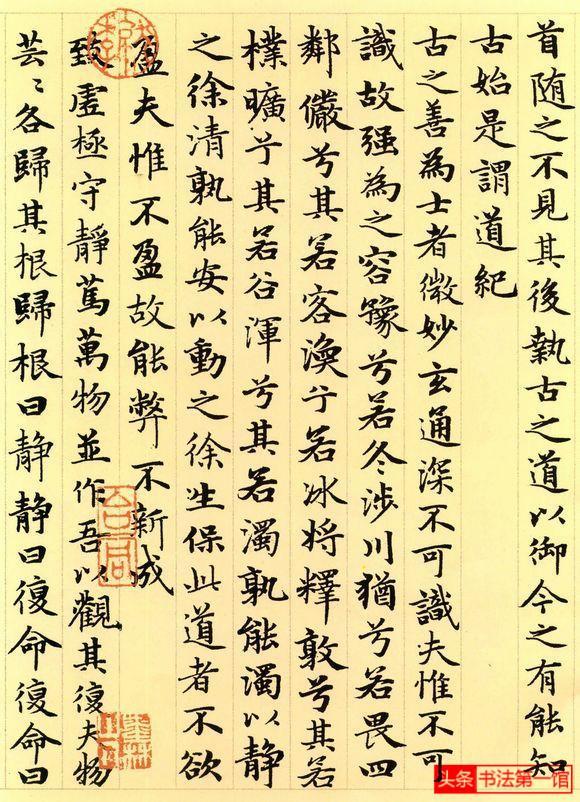 首随之不見其後執古之道以御今之有能知
古始是謂道紀
古之善為士者微妙玄通深不可識夫惟不可
識故强為之容豫兮若冬涉川猶兮若畏四
鄰儼兮其若客渙兮若冰将釋敦兮其若
樸曠兮其若谷渾兮其若濁孰能濁以静
之徐清孰能安以動之徐生保此道者不欲
盈夫惟不盈故能弊不新成
致虛極守靜篤萬物並作吾以觀其復夫物
芸〻各歸其根歸根曰静静曰復命復命曰
头条 书法第一馆